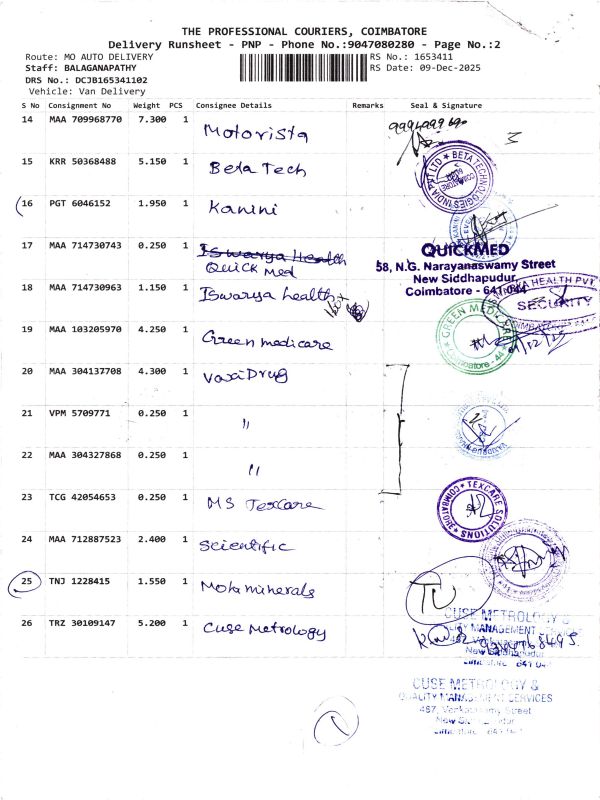 THE PROFESSIONAL COURIERS, COIMBATORE
Delivery Runsheet - PNP - Phone No.:9047080280 - Page No.:2
Route: MO AUTO DELIVERY
RS No.: 1653411
Staff: BALAGANAPATHY
RS Date: 09-Dec-2025
DRS No.: DCJB165341102
Vehicle: Van Delivery
S No Consignment No Weight PCS Consignee Details Remarks Seal & Signature
14 MAA 709968770 7.300 1 Motorista
15 KRR 50368488 5.150 1 Beta Tech
BETA TECHNOLOGIES INDIA PVT LTD
16 PGT 6046152 1.950 1 Kanini
17 MAA 714730743 0.250 1 Iswarya Health
Quick med
QUICKMED
58, N.G. Narayanaswamy Street
New Siddhapudur,
Coimbatore - 641 044
18 MAA 714730963 1.150 1 Iswarya health
HEALTH PVT
SECURITY
19 MAA 103205970 4.250 1 Green medicare
GREEN MEDICARE
Coimbatore - 44
20 MAA 304137708 4.300 1 VaxiDrug
21 VPM 5709771 0.250 1 "
22 MAA 304327868 0.250 1 "
23 TCG 42054653 0.250 1 MS Texcare
TEXCARE SOLUTIONS
COIMBATORE
24 MAA 712887523 2.400 1 Scientific
25 TNJ 1228415 1.550 1 Mota minerals
26 TRZ 30109147 5.200 1 Cuse Metrology
CUSE METROLOGY &
QUALITY MANAGEMENT
CUSE METROLOGY &
QUALITY MANAGEMENT SERVICES
487, Venkatasamy Street